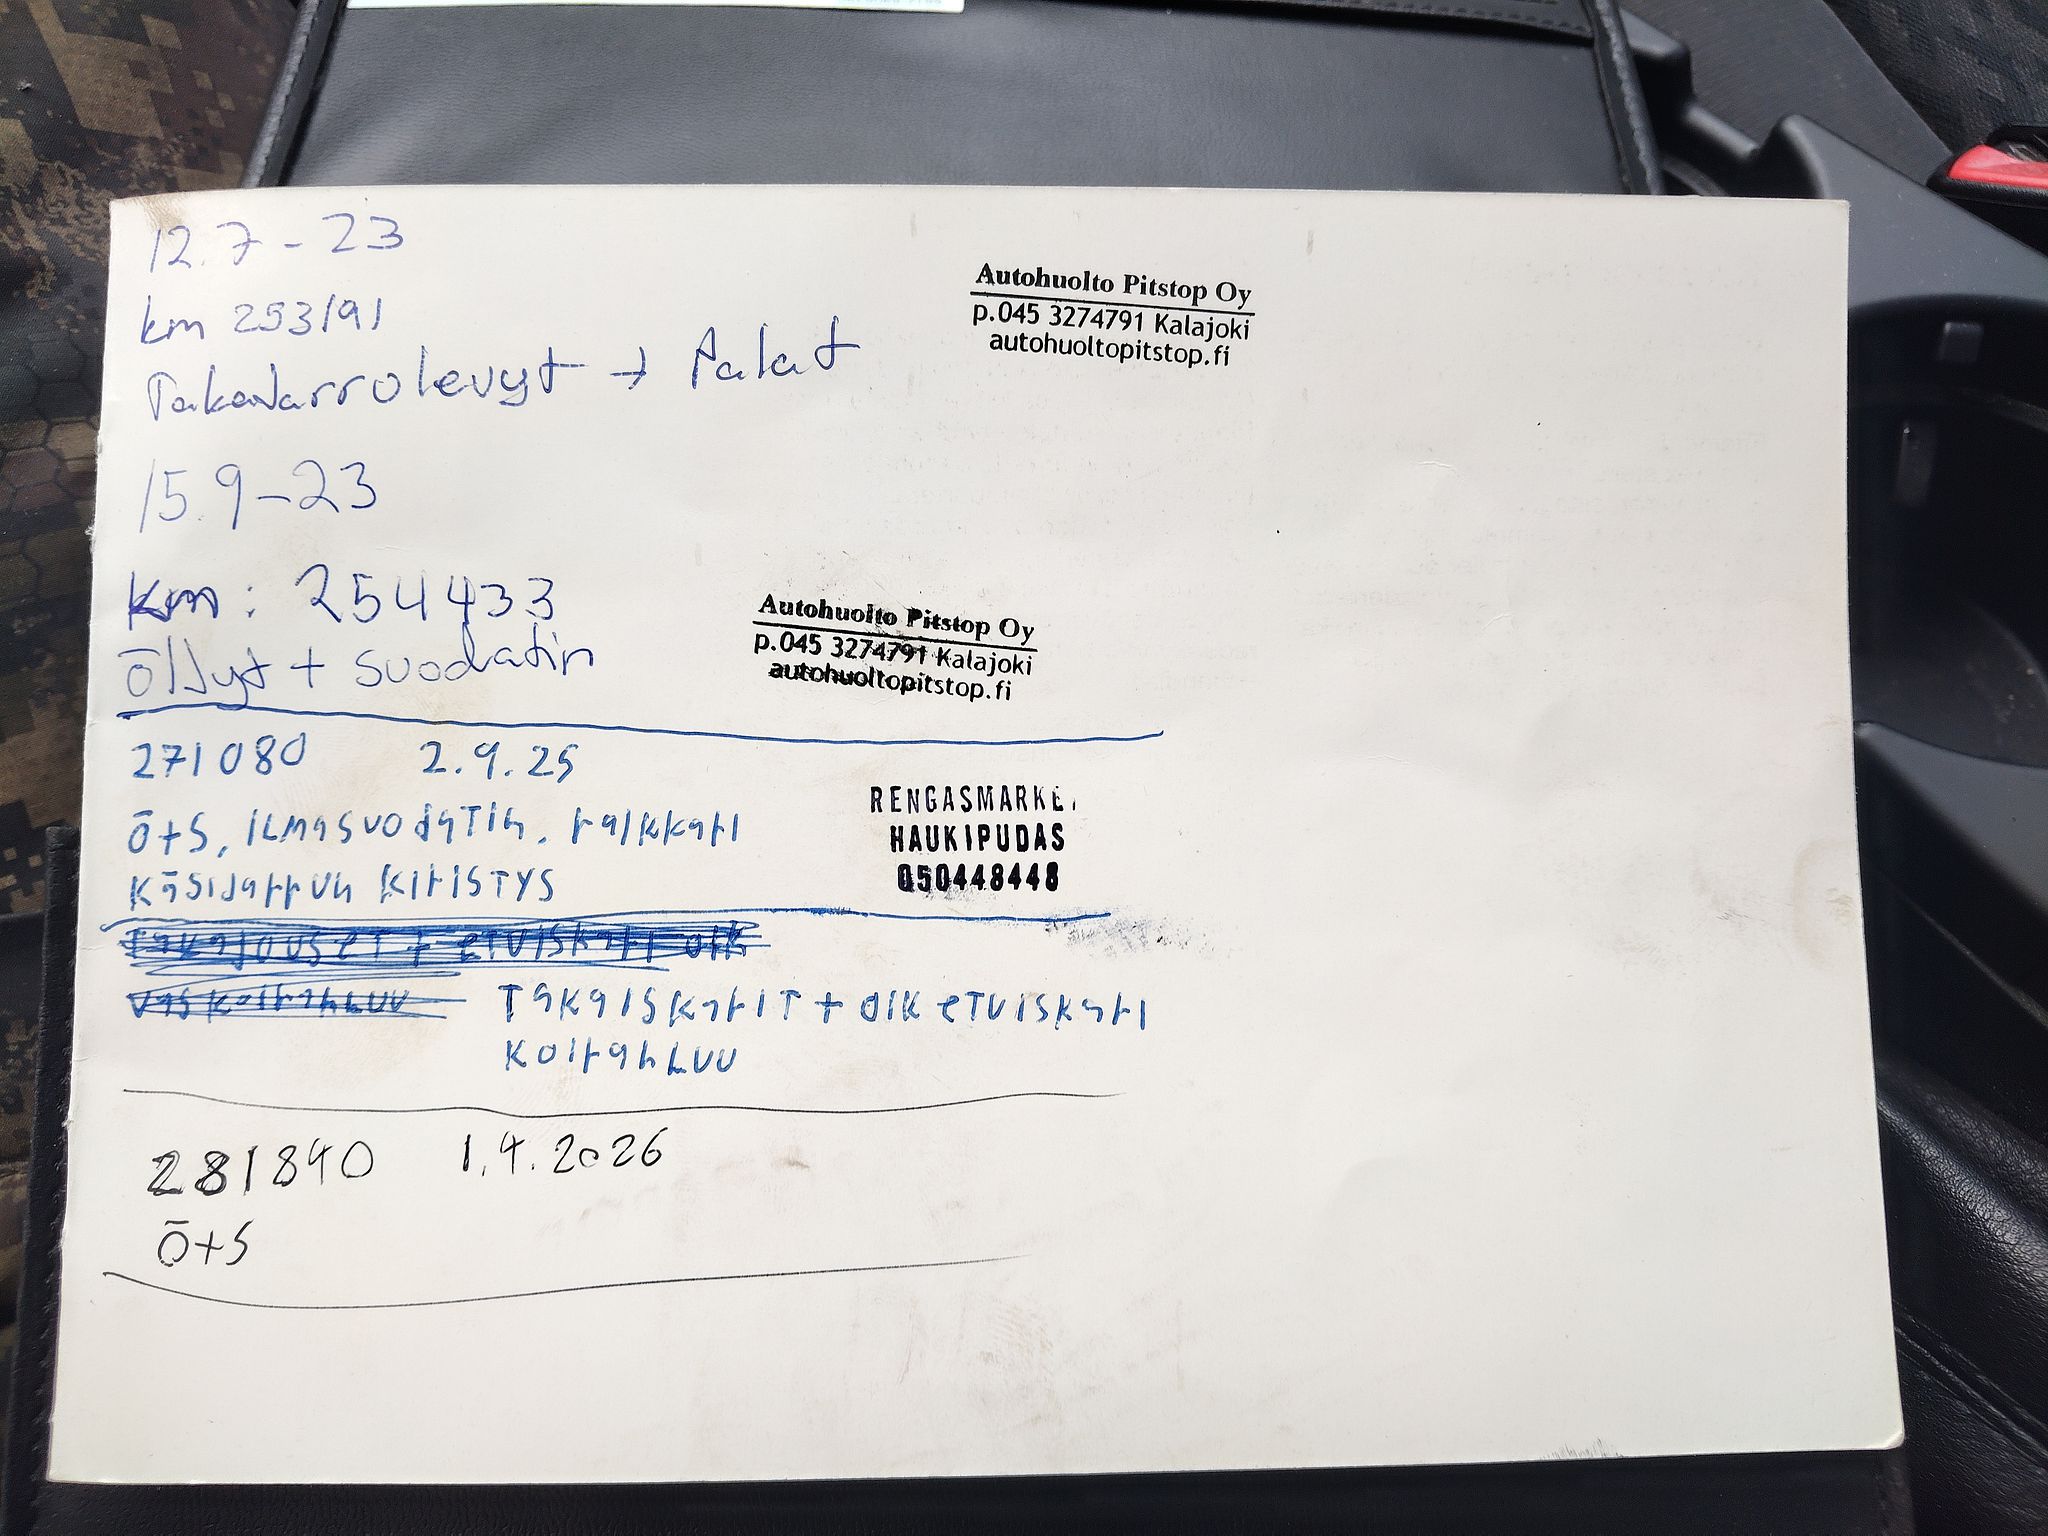 12.7-23
km 253191
Takajarrolevyt + Palat
Autohuolto Pitstop Oy
p.045 3274791 Kalajoki
autohuoltopitstop.fi
15.9-23
km: 254433
Öljyt + suodatin
Autohuolto Pitstop Oy
p.045 3274791 Kalajoki
autohuoltopitstop.fi
271080 2.9.25
Ö+S, ILMASUODATIN, RAIKKARI
KÄSIJARRUN KIRISTYS
RENGASMARKET
HAUKIPUDAS
050448448
TAKAJOUSET + ETUISKARI OIK
VAS KOIRANLUU TAKAISKARIT + OIK ETUISKARI
KOIRANLUU
281840 1.4.2026
Ö+S